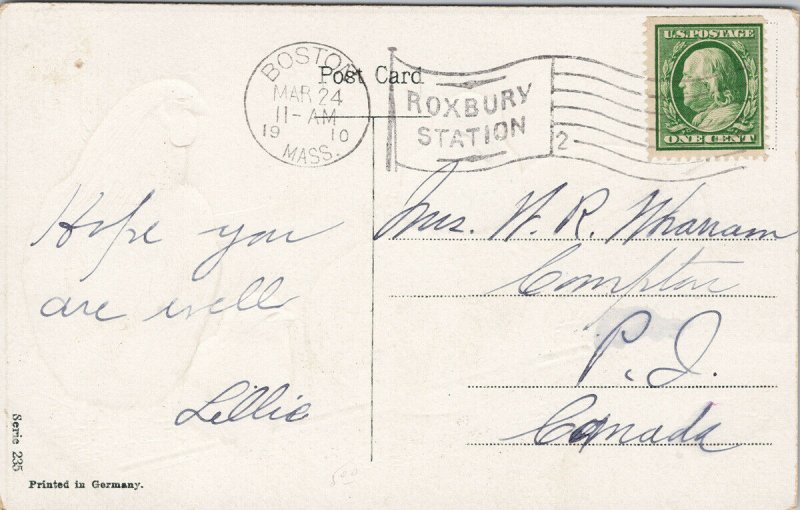 Post Card
BOSTON
MAR 24
11-AM
19 10
MASS.
ROXBURY
STATION
2
U.S. POSTAGE
ONE CENT
Hope you
are well
Lillie
Mrs. W. R. Wharram
Compton
P. Q.
Canada
Serie 235
Printed in Germany.
5.00